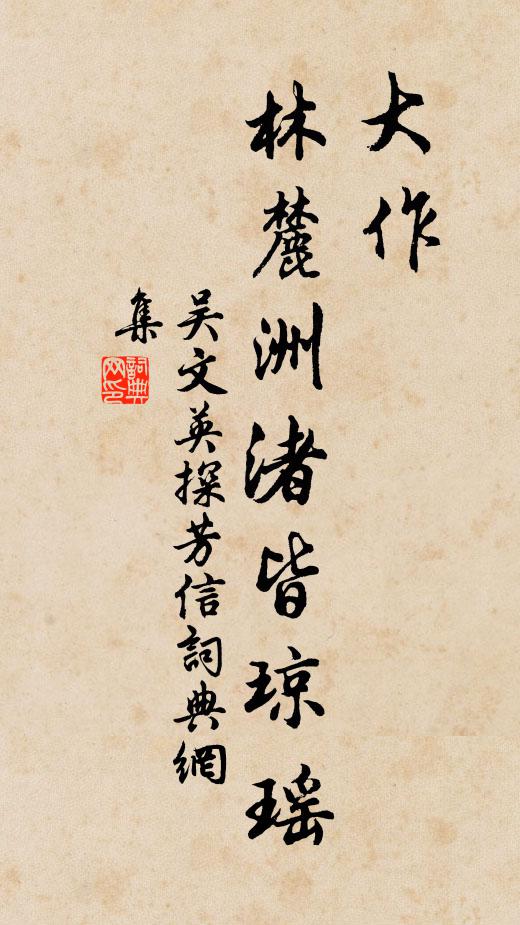 大作
林麓洲渚皆琼瑶
吴文英探芳信詞典網
集
詞典网印